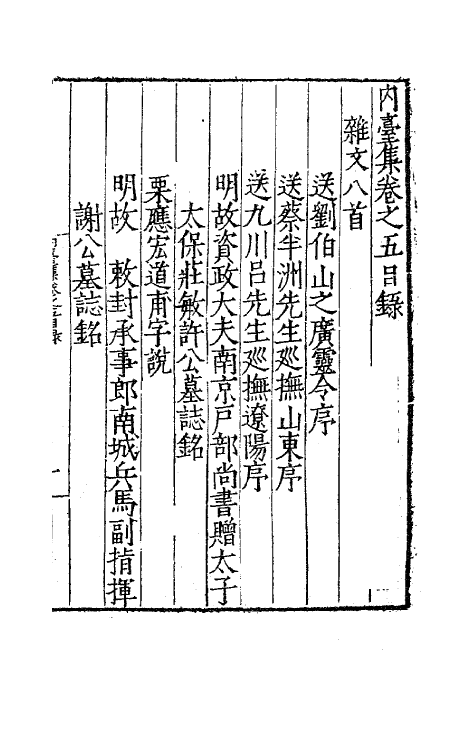 內臺集卷之五目錄
雜文八首
送劉伯山之廣靈令序
送蔡半洲先生廵撫山東序
送九川呂先生廵撫遼陽序
明故資政大夫南京戶部尚書贈太子
太保莊敏許公墓誌銘
栗應宏道甫字說
明故 敕封承事郎南城兵馬副指揮
謝公墓誌銘